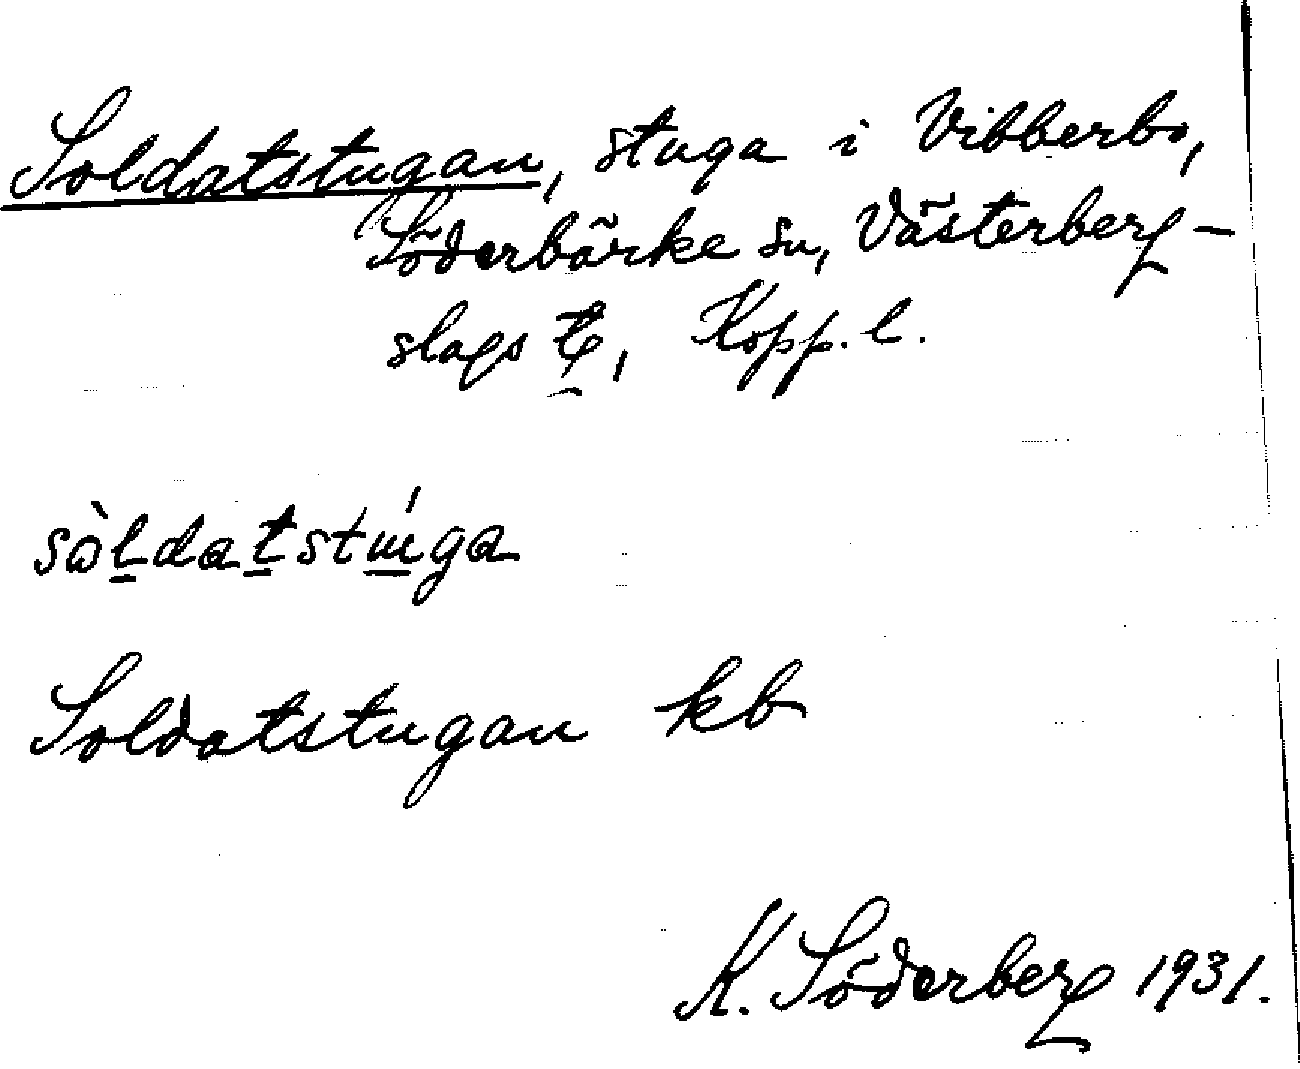 Soldatstugan, stuga i Vibberbo,
Söderbärke sn, Västerberg-
slags t, Kopp. l.
sòldatstúga
Soldatstugan kb
K. Söderberg 1931.